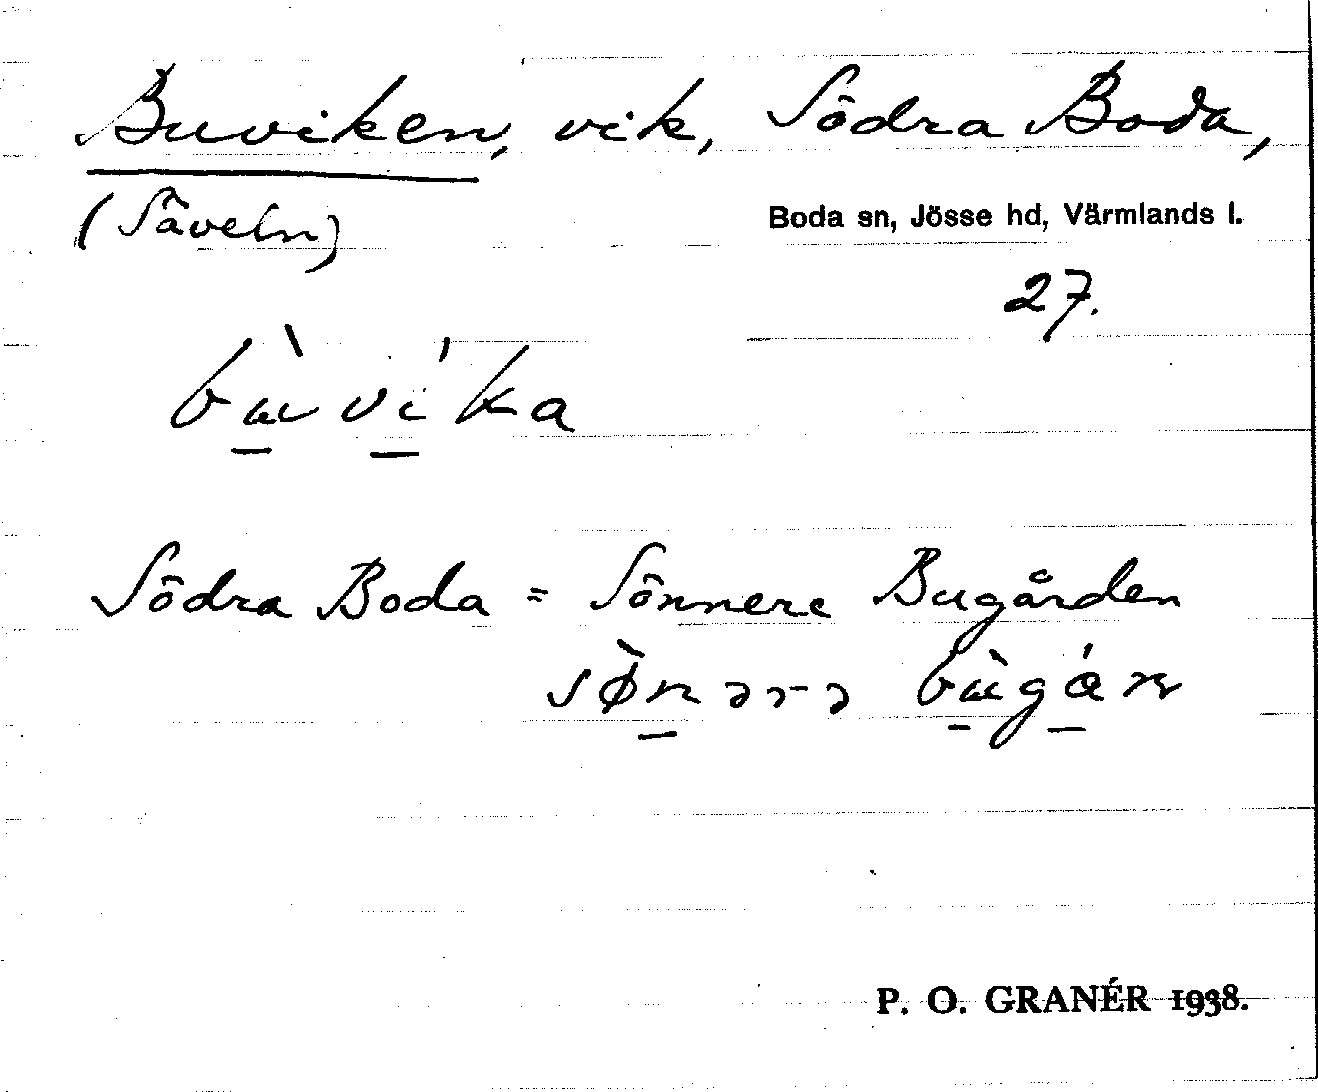 Buviken, vik, Södra Boda,
(Säveln)
Boda sn, Jösse hd, Värmlands l.
27.
bù̠ví̠ka
Södra Boda = Sönnere Bugården
sø̀n̠ərə bù̠gá̠n
P. O. GRANÉR 1938.